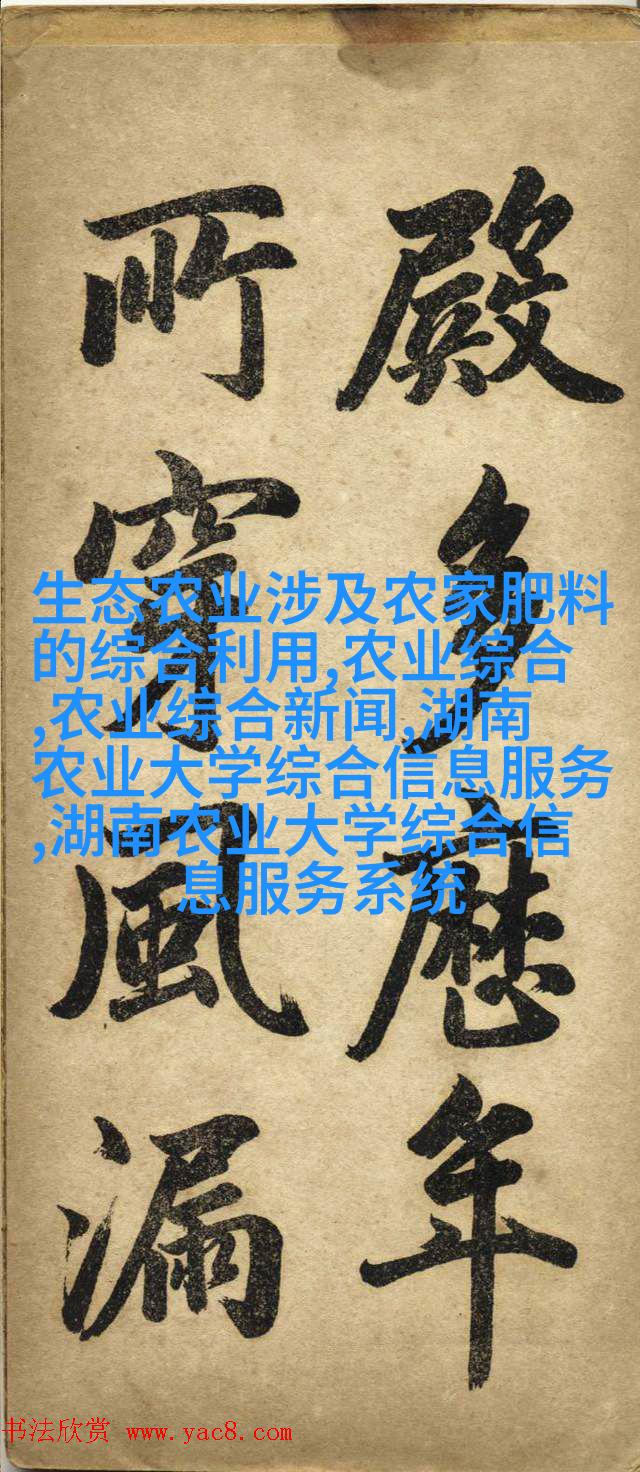 殿多歷年
所穿風漏
生态农业涉及农家肥料
的综合利用,农业综合
,农业综合新闻,湖南
农业大学综合信息服务
,湖南农业大学综合信
息服务系统
书法欣赏 www.yac8.com